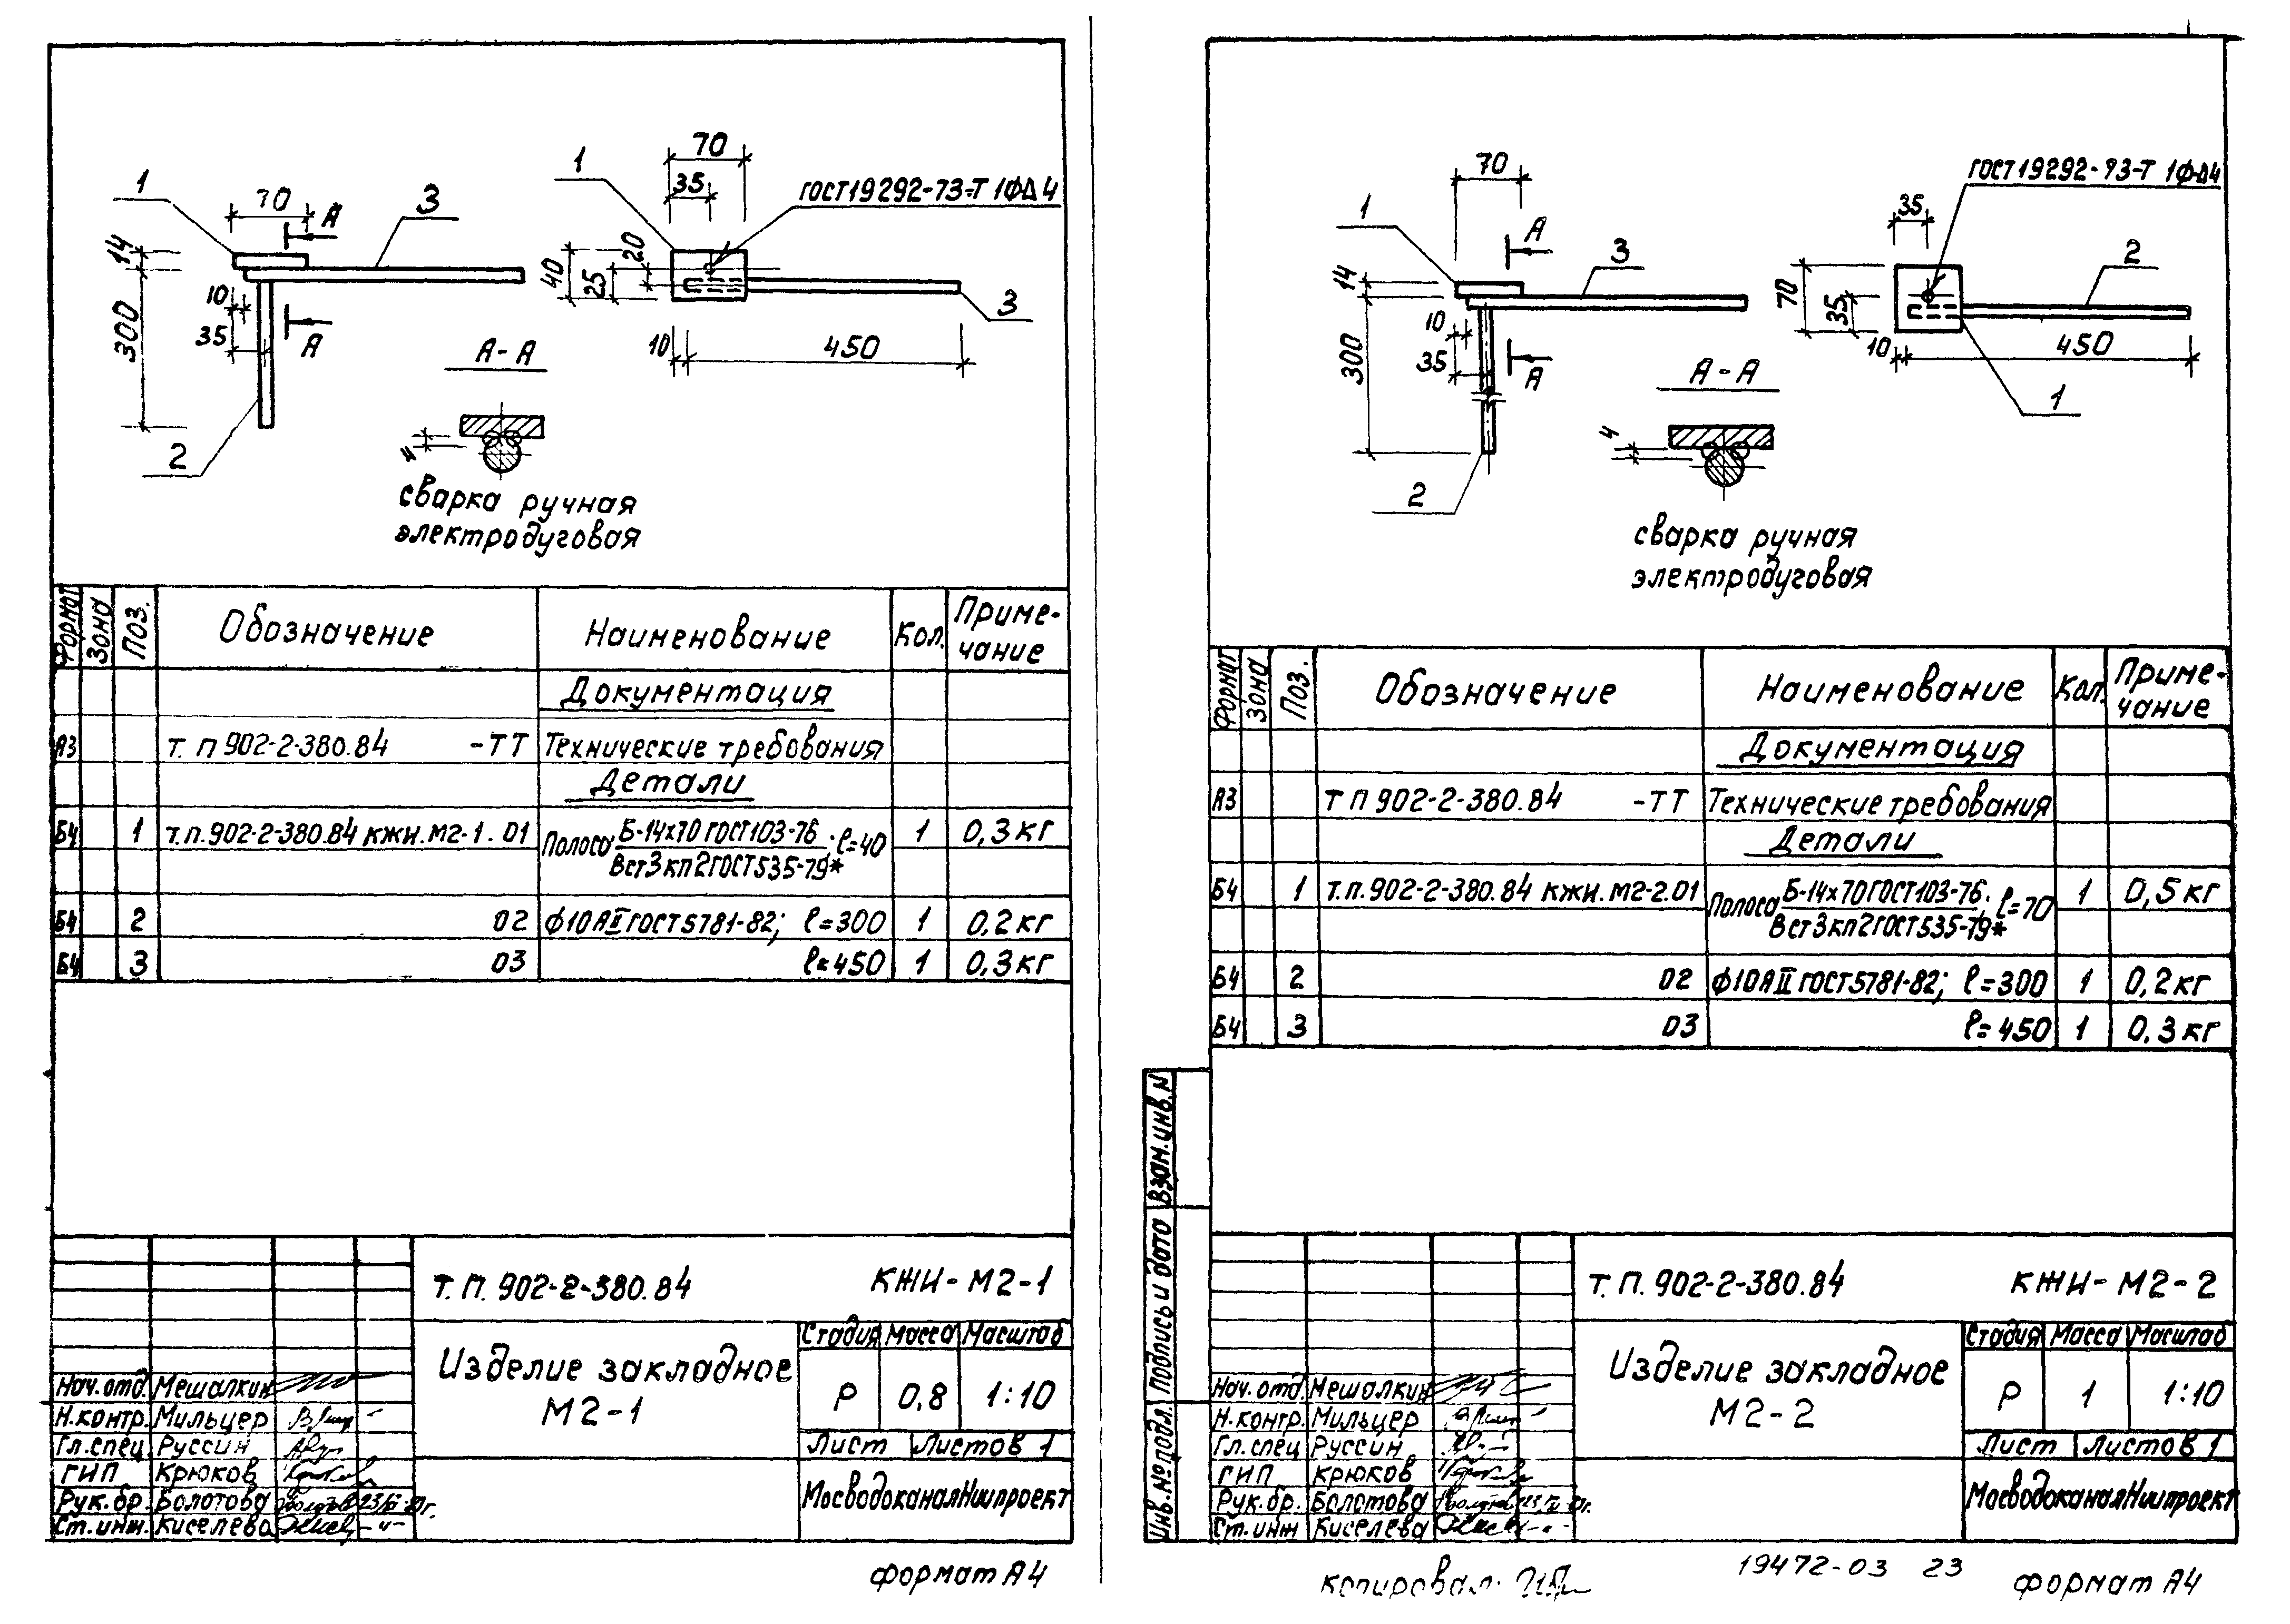 1
70
А
3
14
300
10
35
А
2
А-А
4
сварка ручная
электродуговая
1
70
35
ГОСТ19292-73-Т 1ФΔ4
40
25
20
3
10
450
Формат
Зона
Поз.
Обозначение
Наименование
Кол.
Приме-
чание
Документация
А3 т. п 902-2-380.84 -ТТ Технические требования
Детали
Б4 1 т.п.902-2-380.84 КЖИ.М2-1.01 Полоса Б-14х70 ГОСТ103-76 ℓ=40 1 0,3 кг
Вст3кп2ГОСТ535-79*
Б4 2 02 ф10АII ГОСТ5781-82; ℓ=300 1 0,2кг
Б4 3 03 ℓ=450 1 0,3кг
т.п. 902-2-380.84 КЖИ-М2-1
Изделие закладное
М2-1
Стадия Масса Масштаб
Р 0,8 1:10
Лист Листов 1
МосводоканалНиипроект
Нач.отд. Мешалкин
Н.контр. Мильцер
Гл.спец Руссин
ГИП Крюков
Рук.бр. Болотова
Ст.инж. Киселева
формат А4
1
70
А
3
14
300
10
35
А
2
А-А
4
сварка ручная
электродуговая
ГОСТ19292-73-Т 1ФΔ4
35
70
35
2
10
450
1
Формат
Зона
Поз.
Обозначение
Наименование
Кол.
Приме-
чание
Документация
А3 т п 902-2-380.84 -ТТ Технические требования
Детали
Б4 1 т.п.902-2-380.84 КЖИ.М2-2.01 Полоса Б-14х70ГОСТ103-76. ℓ=70 1 0,5 кг
Вст3кп2ГОСТ535-79*
Б4 2 02 ф10АII ГОСТ5781-82; ℓ=300 1 0,2кг
Б4 3 03 ℓ=450 1 0,3кг
Взам.инв.N
Подпись и дата
Инв.№подл.
т.п.902-2-380.84 КЖИ-М2-2
Изделие закладное
М2-2
Стадия Масса Масштаб
Р 1 1:10
Лист Листов 1
МосводоканалНиипроект
Нач.отд. Мешалкин
Н.контр. Мильцер
Гл.спец Руссин
ГИП Крюков
Рук.бр. Болотова
Ст.инж Киселева
копировал:
19472-03 23
формат А4